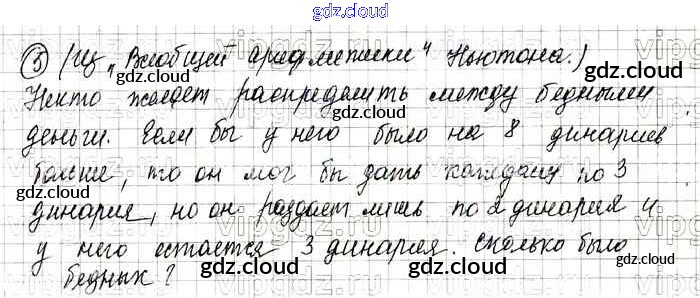 gdz.cloud
⑤ (Из „Всеобщей арифметики" Ньютона.)
Некто желает распределить между бедными
деньги. Если бы у него было на 8 динариев
больше, то он мог бы дать каждому по 3
динария, но он раздаёт лишь по 2 динария и
у него остается 3 динария. Сколько было
бедных?